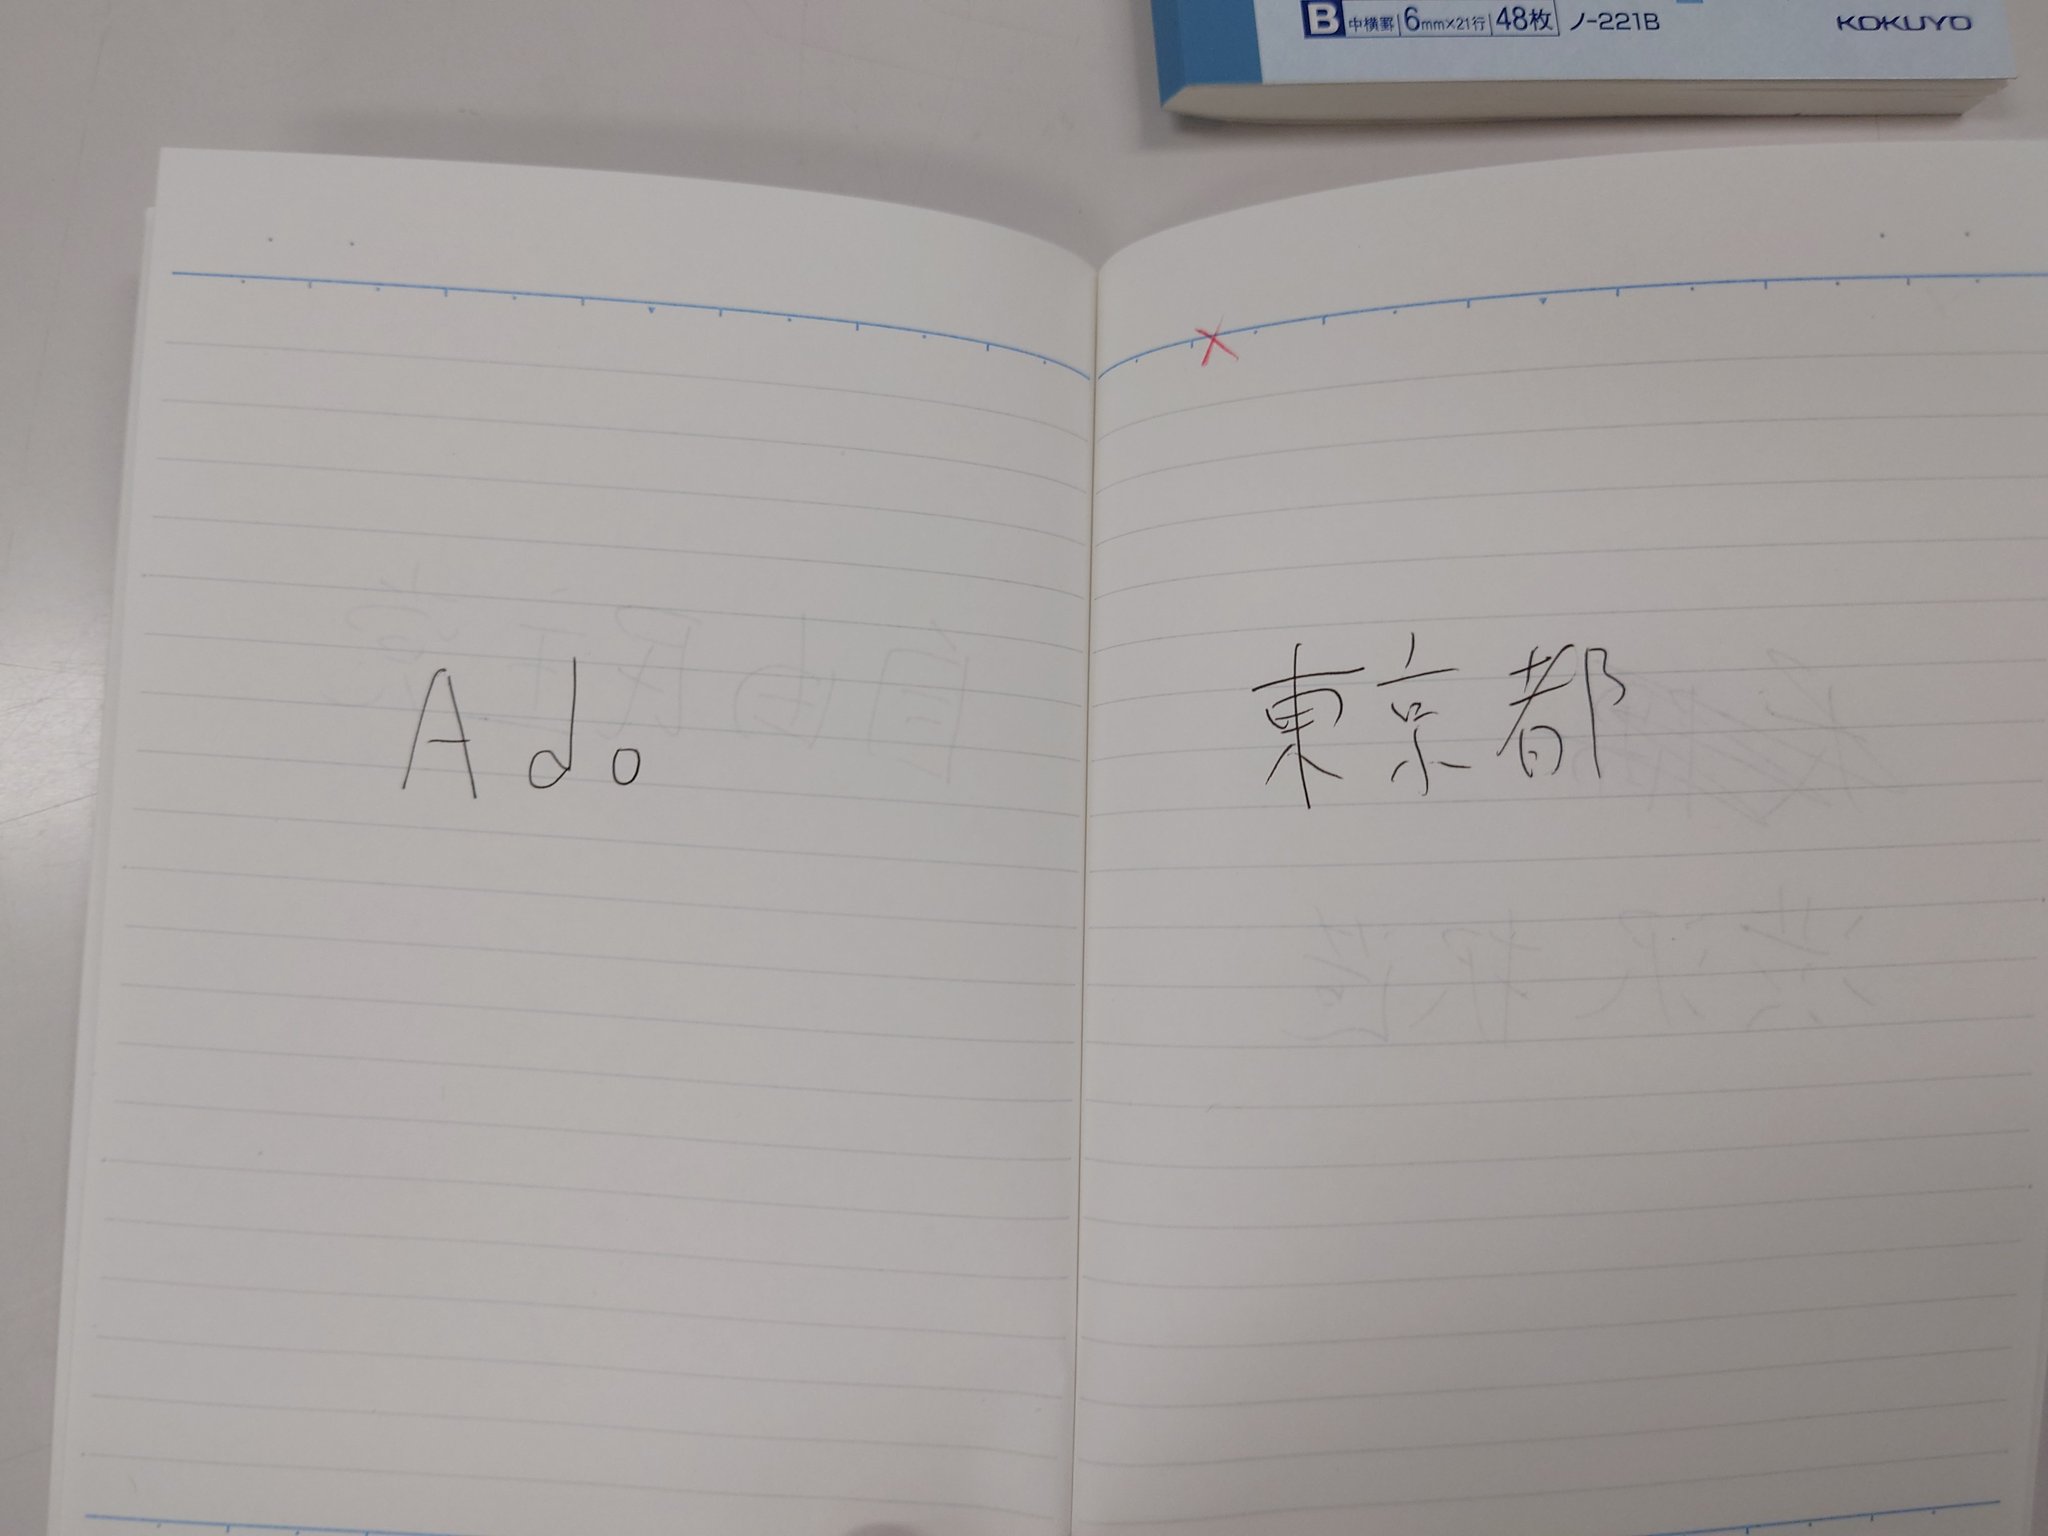 B 中横罫 6mm×21行 48枚 ノ-221B KOKUYO
Ado
東京都